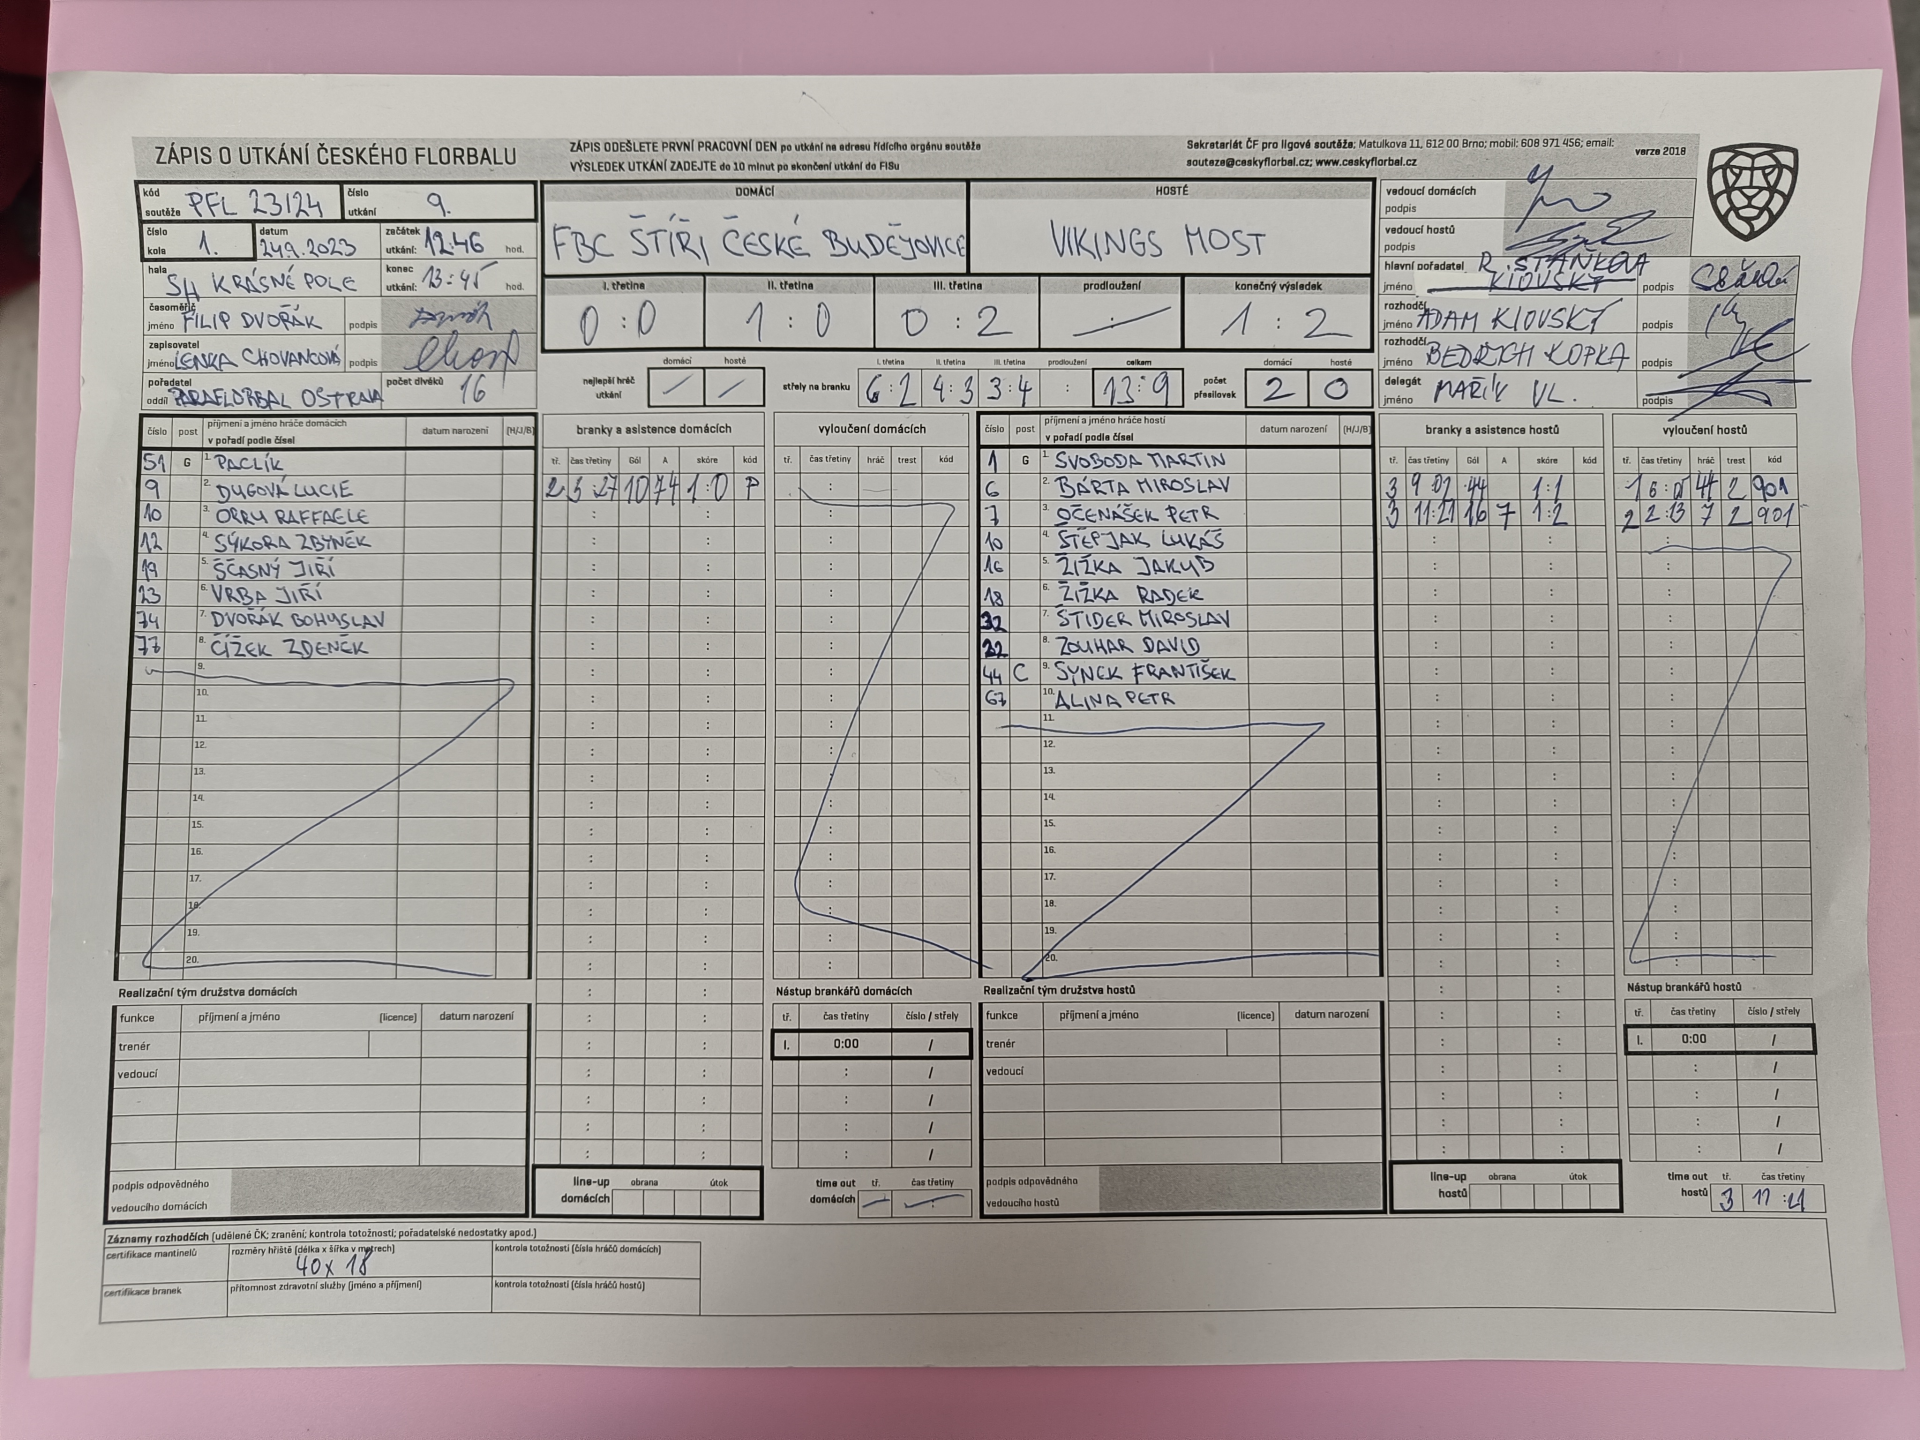 ZÁPIS O UTKÁNÍ ČESKÉHO FLORBALU
ZÁPIS ODEŠLETE PRVNÍ PRACOVNÍ DEN po utkání na adresu řídícího orgánu soutěže
VÝSLEDEK UTKÁNÍ ZADEJTE do 10 minut po skončení utkání do FISu
Sekretariát ČF pro ligové soutěže; Matulkova 11, 612 00 Brno; mobil: 608 971 456; email:
souteze@ceskyflorbal.cz; www.ceskyflorbal.cz
verze 2018
kód soutěže PFL 23/24 číslo utkání 9.
číslo kola 1. datum 24.9.2023 začátek utkání: 12:46 hod.
hala SH KRÁSNÉ POLE konec utkání: 13:45 hod.
časoměřič jméno FILIP DVOŘÁK podpis
zapisovatel jméno LENKA CHOVANCOVÁ podpis
pořadatel oddíl PARAFLORBAL OSTRAVA počet diváků 16
DOMÁCÍ HOSTÉ
FBC ŠTÍŘI ČESKÉ BUDĚJOVICE VIKINGS MOST
I. třetina II. třetina III. třetina prodloužení konečný výsledek
0 : 0 1 : 0 0 : 2 : 1 : 2
nejlepší hráč utkání domácí hosté
střely na branku I. třetina II. třetina III. třetina prodloužení celkem
6:2 4:3 3:4 : 13:9
počet přesilovek domácí hosté 2 0
vedoucí domácích podpis
vedoucí hostů podpis
hlavní pořadatel jméno R. STAŇKOVÁ KIOVSKÝ podpis
rozhodčí jméno ADAM KIOVSKÝ podpis
rozhodčí jméno BEDŘICH KOPKA podpis
delegát jméno MAŘÍK VL. podpis
číslo post příjmení a jméno hráče domácích v pořadí podle čísel datum narození (H/J/B)
51 G 1. PACLÍK
9 2. DUGOVÁ LUCIE
10 3. ORRU RAFFAELE
12 4. SÝKORA ZBYNĚK
19 5. ŠČASNÝ JIŘÍ
23 6. VRBA JIŘÍ
74 7. DVOŘÁK BOHUSLAV
77 8. ČÍŽEK ZDENĚK
9.
10.
11.
12.
13.
14.
15.
16.
17.
18.
19.
20.
branky a asistence domácích
tř. čas třetiny Gól A skóre kód
2 3:27 10 74 1:0 P
vyloučení domácích
tř. čas třetiny hráč trest kód
číslo post příjmení a jméno hráče hostí v pořadí podle čísel datum narození (H/J/B)
1 G 1. SVOBODA MARTIN
6 2. BÁRTA MIROSLAV
7 3. OČENÁŠEK PETR
10 4. ŠTĚPJAK LUKÁŠ
16 5. ŽIŽKA JAKUB
18 6. ŽIŽKA RADEK
7. ŠTIDER MIROSLAV
22 8. ZOUHAR DAVID
44 C 9. SYNEK FRANTIŠEK
67 10. ALINA PETR
11.
12.
13.
14.
15.
16.
17.
18.
19.
20.
branky a asistence hostů
tř. čas třetiny Gól A skóre kód
3 9 02 44 1:1
3 11:21 16 7 1:2
vyloučení hostů
tř. čas třetiny hráč trest kód
1 6:05 44 2 901
2 2:13 7 2 901
Realizační tým družstva domácích
funkce příjmení a jméno (licence) datum narození
trenér
vedoucí
podpis odpovědného vedoucího domácích
line-up domácích obrana útok
Nástup brankářů domácích
tř. čas třetiny číslo / střely
I. 0:00 /
time out domácích tř. čas třetiny
Realizační tým družstva hostů
funkce příjmení a jméno (licence) datum narození
trenér
vedoucí
podpis odpovědného vedoucího hostů
line-up hostů obrana útok
Nástup brankářů hostů
tř. čas třetiny číslo / střely
I. 0:00 /
time out hostů tř. čas třetiny
3 11:21
Záznamy rozhodčích (udělené ČK; zranění; kontrola totožnosti; pořadatelské nedostatky apod.)
certifikace mantinelů rozměry hřiště (délka x šířka v metrech) 40 x 18 kontrola totožnosti (čísla hráčů domácích)
certifikace branek přítomnost zdravotní služby (jméno a příjmení) kontrola totožnosti (čísla hráčů hostů)